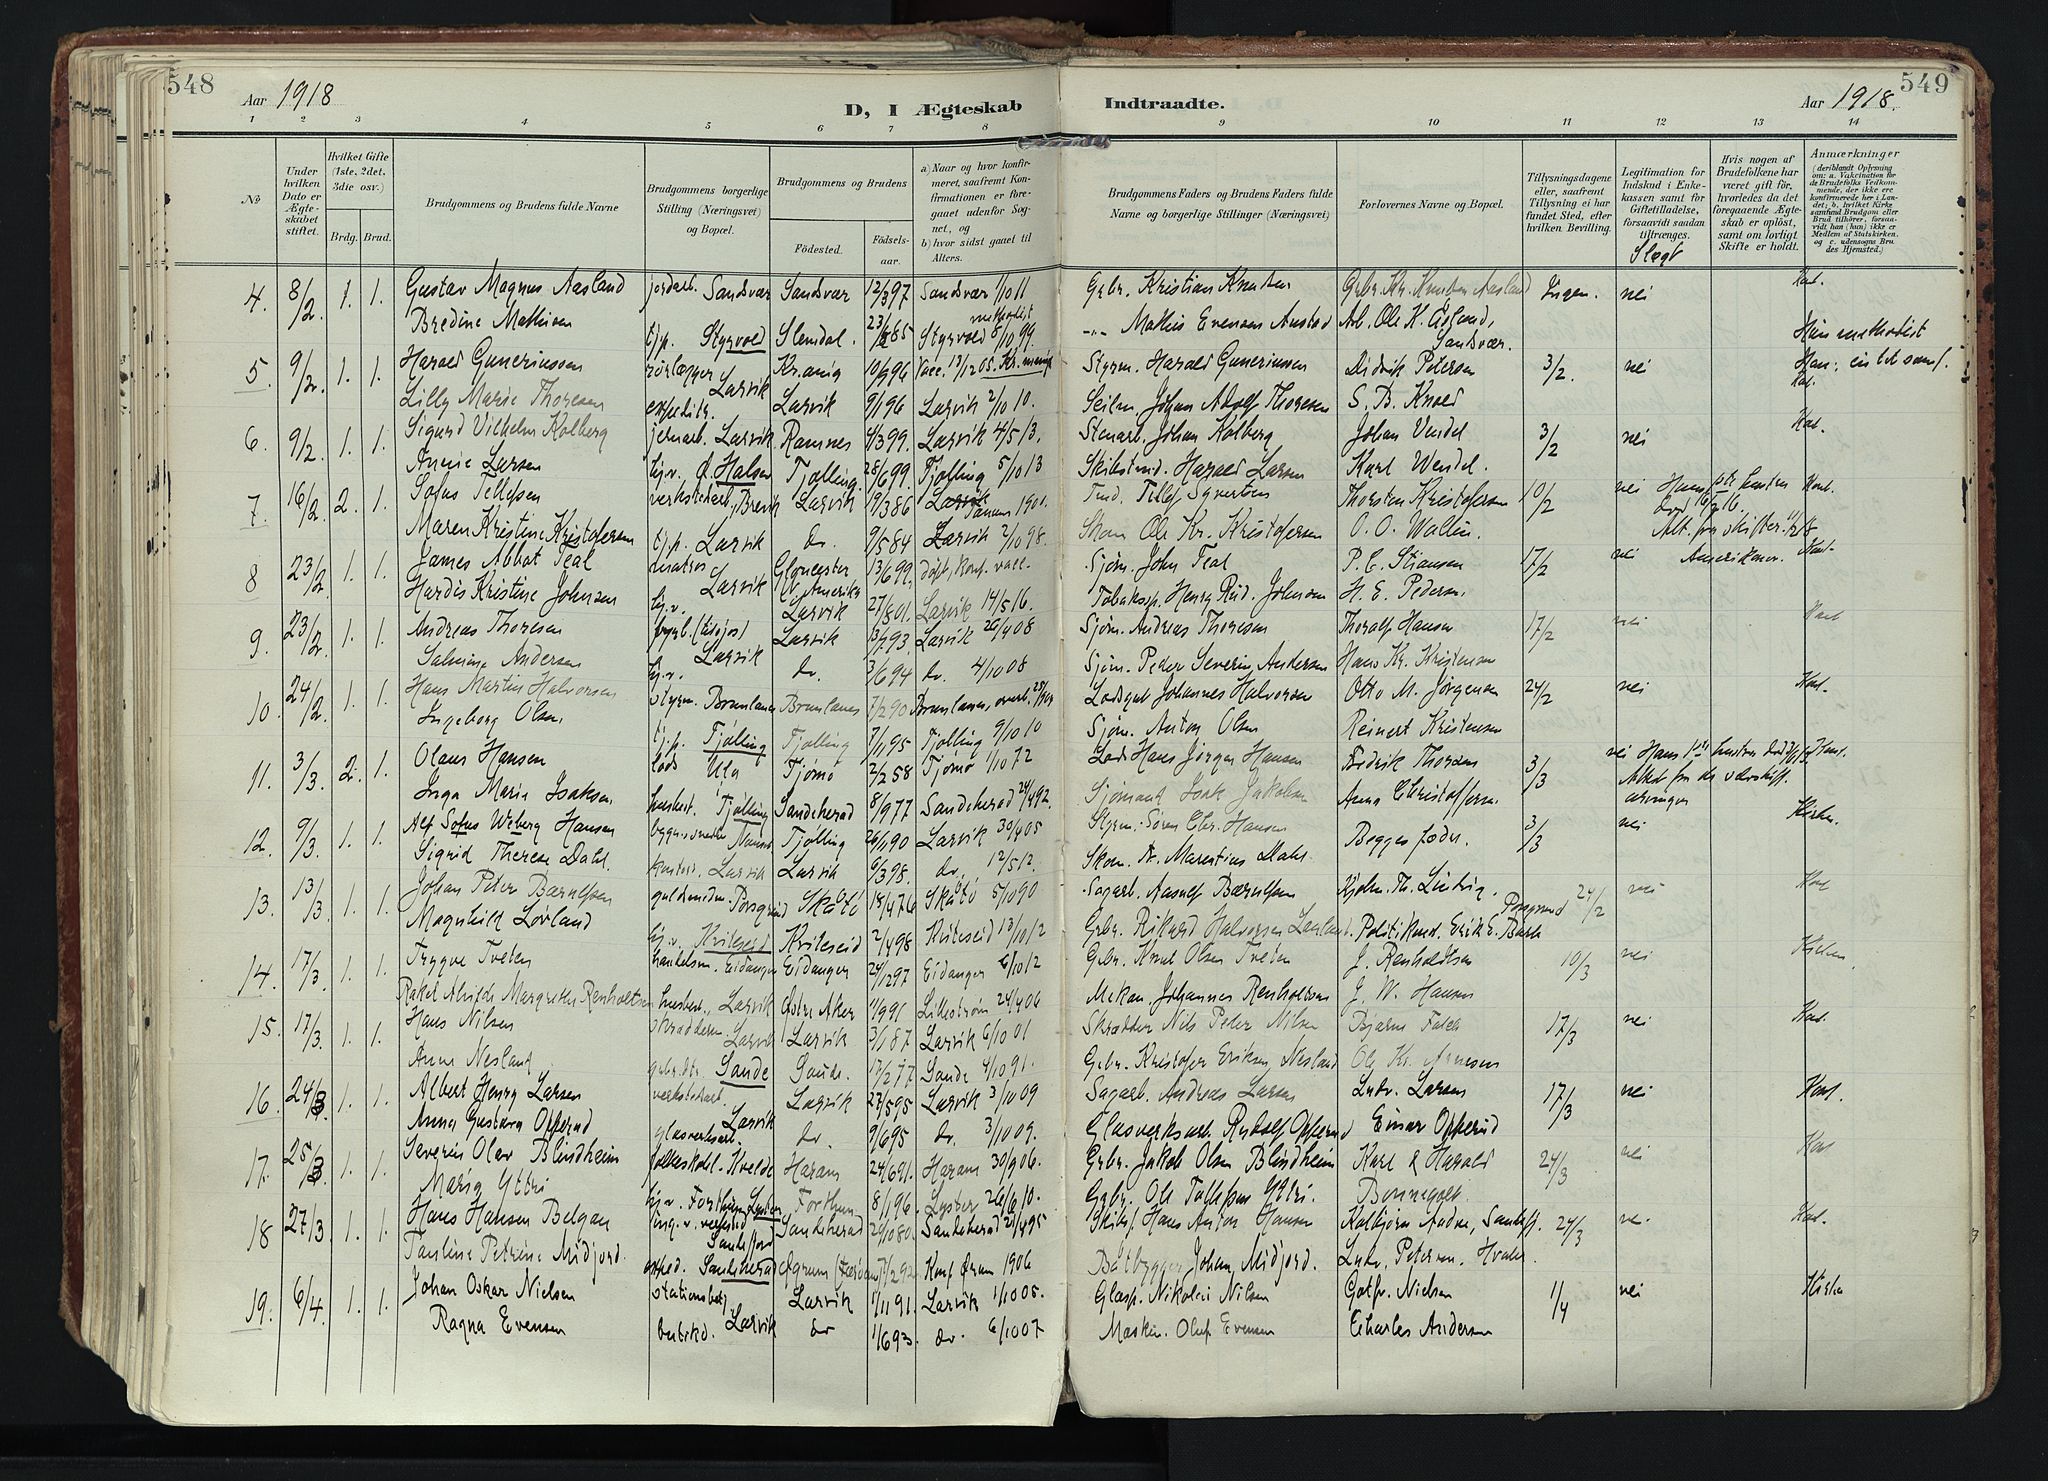 548
Aar 1918
D, I Ægteskab
1 2 3 4 5 6 7 8
№
Under hvilken Dato er Ægte-skabet stiftet.
Hvilket Gifte (1ste, 2det, 3die osv.)
Brdg. Brud.
Brudgommens og Brudens fulde Navne
Brudgommens borgerlige Stilling (Næringsvei) og Bopœl.
Brudgommens og Brudens
Fødested. Fødsels-aar.
a) Naar og hvor konfir-meret, saafremt Kon-firmationen er fore-gaaet udenfor Sog-net, og
b) hvor sidst gaaet til Alters.
4. 8/2 1. 1. Gustav Magnus Aasland jordarb. Sandsvær Sandsvær 12/3 97 Sandsvær 1/10 11
methodist
Bredine Mathisen tjp. Styrvold Slemdal. 85 Styrvold 8/10 99.
5. 9/2. 1. 1. Harald Gunerius​sen rørlægger Kr.ania 10/9 96 Vacc. 13/12 05. Kr. menigh
Larvik
Lilly Marie Thoresen expeditr. Larvik 9/1 96 Larvik 2/10 10.
6. 9/2. 1. 1. Sigurd Vilhelm Kolberg jernarb. Larvik Ramnes 4/3 99. Larvik 4/5 13.
Annie Larsen Ø. Halsen Tjølling 28/6 99. Tjølling 5/10 13
7. 16/2. 2. 1. Sofus Tellefsen verkstedarb, Brevik Larvik 19/3 86 1901.
Maren Kristine Kristofersen tjp. Larvik do. 9/5 84 Larvik 2/10 98.
8 23/2. 1. 1. James Abbot Teal matros Gloucester 13/6 99. døpt, konf. vacc.
Larvik N. Amerika
Hardis Kristine Johnsen hj.v. Larvik 27/8 01. Larvik 14/5 16.
9. 23/2. 1. 1. Andreas Thoresen fyrb. (tilsjøs) Larvik 13/7 93. Larvik 26/4 08
Larvik
Salmine Andersen hj.v. do. 3/6 94 do. 4/10 08
10. 24/2. 1. 1. Hans Martin Halvorsen styrm. Brunlanes Brunlanes 7/2 90 Brunlanes,
Ingeborg Olsen tjp. Tjølling Tjølling 7/11 95 Tjølling 9/10 10
11. 3/3. 2. 1. Olaus Hansen lods Ula Tjømø 2/2 58 Tjømø 1/10 72
Inga Marie Isaksen husbest. Tjølling Sandeherad 8/9 77 Sandeherad 24/4 92.
12. 9/3. 1. 1. Alf Sofus Weberg Hansen Tjølling 26/1 90 Larvik 30/4 05
Sigrid Therese Dahl Larvik Larvik 6/3 98. do. 12/5 12.
13. 13/3. 1. 1. Johan Peter Bærulfsen guldsmedm. Porsgrund Skåtø 18/4 76 Skåtø 5/10 90
Magnhild Lovland hj.v. Kviteseid Kviteseid 2/4 98 Kviteseid 13/10 12
14. 17/3. 1. 1. Trygve Tveten handelsm. Eidanger Eidanger 24/12 97 Eidanger 6/10 12
Rakel Alvilde Margrethe Renholtsen husbest., Larvik Østre Aker 1/9 91 Lillestrøm 24/4 06
15. 17/3. 1. 1. Hans Nilsen skrædderm. Larvik Larvik 3/1 87 Larvik 6/10 01
Anne Nesland gbr.dtr. Sande Sande. 12/2 77 Sande 4/10 91.
16. 24/3 1. 1. Albert Henry Larsen verkstedarb. Larvik 27/5 95 Larvik 3/10 09
Larvik
Anna Gustava Opperud glasverksarb. do. 9/6 95 do. 3/10 09.
17. 25/3 1. 1. Severin Olav Blindheim folkeskol. Kvelde Haram 24/6 91. Haram 30/9 06.
Maria Yttri hj.v. Forthun, Luster Forthun 8/1 96. Lyster 26/6 10.
18 27/3 1. 1. Hans Hansen Belgau ing. v. verksted Sandeherad 29/10 80. Sandeherad 21/4 95
Sandefjord
Pauline Petrine Midjord. exped. Sandeherad 92 Konf Ørum 1906
19. 6/4. 1. 1. Johan Oskar Nielsen stationsbetj. Larvik 1/11 91. Larvik 1/10 05.
Larvik
Ragna Evensen do 1/6 93. do. 6/10 07
549
Indtraadte.
Aar 1918.
9 10 11 12 13 14
Brudgommens Faders og Brudens Faders fulde Navne og borgerlige Stillinger (Næringsvei)
Forlovernes Navne og Bopœl.
Tillysningsdagene eller, saafremt Tillysning ei har fundet Sted, efter hvilken Bevilling.
Legitimation for Indskud i Enke-kassen samt for Giftetilladelse, forsaavidt saadan tiltrænges.
Slægt
Hvis nogen af Brudefolkene har været gift før, hvorledes da det foregaaende Ægte-skab er opløst, samt om lovligt Skifte er holdt.
Anmærkninger
(deriblandt Oplysning om: a. Vakcination for de Brudefolks Vedkom-mende, der ikke ere konfirmerede her i Lan-det; b. hvilket Kirke-samfund Brudgom eller Brud tilhører, forsaa-vidt han (hun) ikke er Medlem af Statskirken, og c. udensogns Bru-des Hjemsted.)
Grbr. Kristian Knutsen Grbr. Kr. Knutsen Aasland Ingen. nei
Mathis Evensen Austad Arb. Ole K. Åslund, Sandsvær. Hun methodist
Styrm. Harald Guneriussen Didrik Petersen 3/2. nei
Seilm. Johan Adolf Thoresen S. B. Knoed
Stenarb. Johan Kolberg Johan Vendel 3/2 nei
Skibstmd. Harald Larsen Karl Wendel.
Tmd. Tellef Syvertsen Thorsten Kristofersen 10/2 nei Hans 1ste hustru død
Skom Ole Kr. Kristofersen O. O. Wallin. Att. fra skifter.
Sjøm. John Teal P. C. Stiansen 17/2 nei Amerikaner.
Tobakssp. Henry Rud. Johnsen H. E. Pedersen.
Sjøm. Andreas Thoresen Thoralf Hansen 17/2 nei
Sjøm. Peder Severin Andersen Hans Kr. Kristensen
Lodsgut Johannes Halvorsen Otto M. Jørgensen 24/2 nei
Sjøm. Anton Olsen Reinert Kristensen
Lods Hans Jørgen Hansen Fredrik Thorsen 3/3 nei Hans 1ste hustru død
Sjømand Isak Jakobsen Anna Christoffersen. arvinger
Styrm. Søren Chr. Hansen Begges fædre. 3/3 nei
Skom. A. Marentius Dahl
Sagarb. Aanulf Bærulfsen Kjøbm. Th. Lindvig. Porsgrund 24/2 nei
Grbr. Rikard Halvorsen Politikonst. Erik E. Barh
Grbr. Knut Olsen Tveten J. Renholdtsen 10/3 nei
Mekan. Johannes Renholdtsen J. W. Hansen
Skrædder Nils Peter Nilsen Bjarne Falch 17/3 nei
Grbr. Kristofer Eriksen Nesland Ole Kr. Arnesen
Sagarb. Andreas Larsen Ludv. Larsen 17/3 nei
Glasverksarb. Rudolf Opperud Einar Opperud
Grbr. Jakob Olsen Blindheim Karl & Harald 24/3 nei
Grbr. Ole Tollefsen Yttri. Bonnegolt
Skibsf Hans Anton Hansen Kolbjørn Aadne, Sandefj. 24/3
Båtbygger Johan Midjord. Ludv. Petersen.
Glasp. Nikolai Nilsen Gotfr. Nielsen 1/4 nei
Maskin. Oluf Evensen Charles Andersen